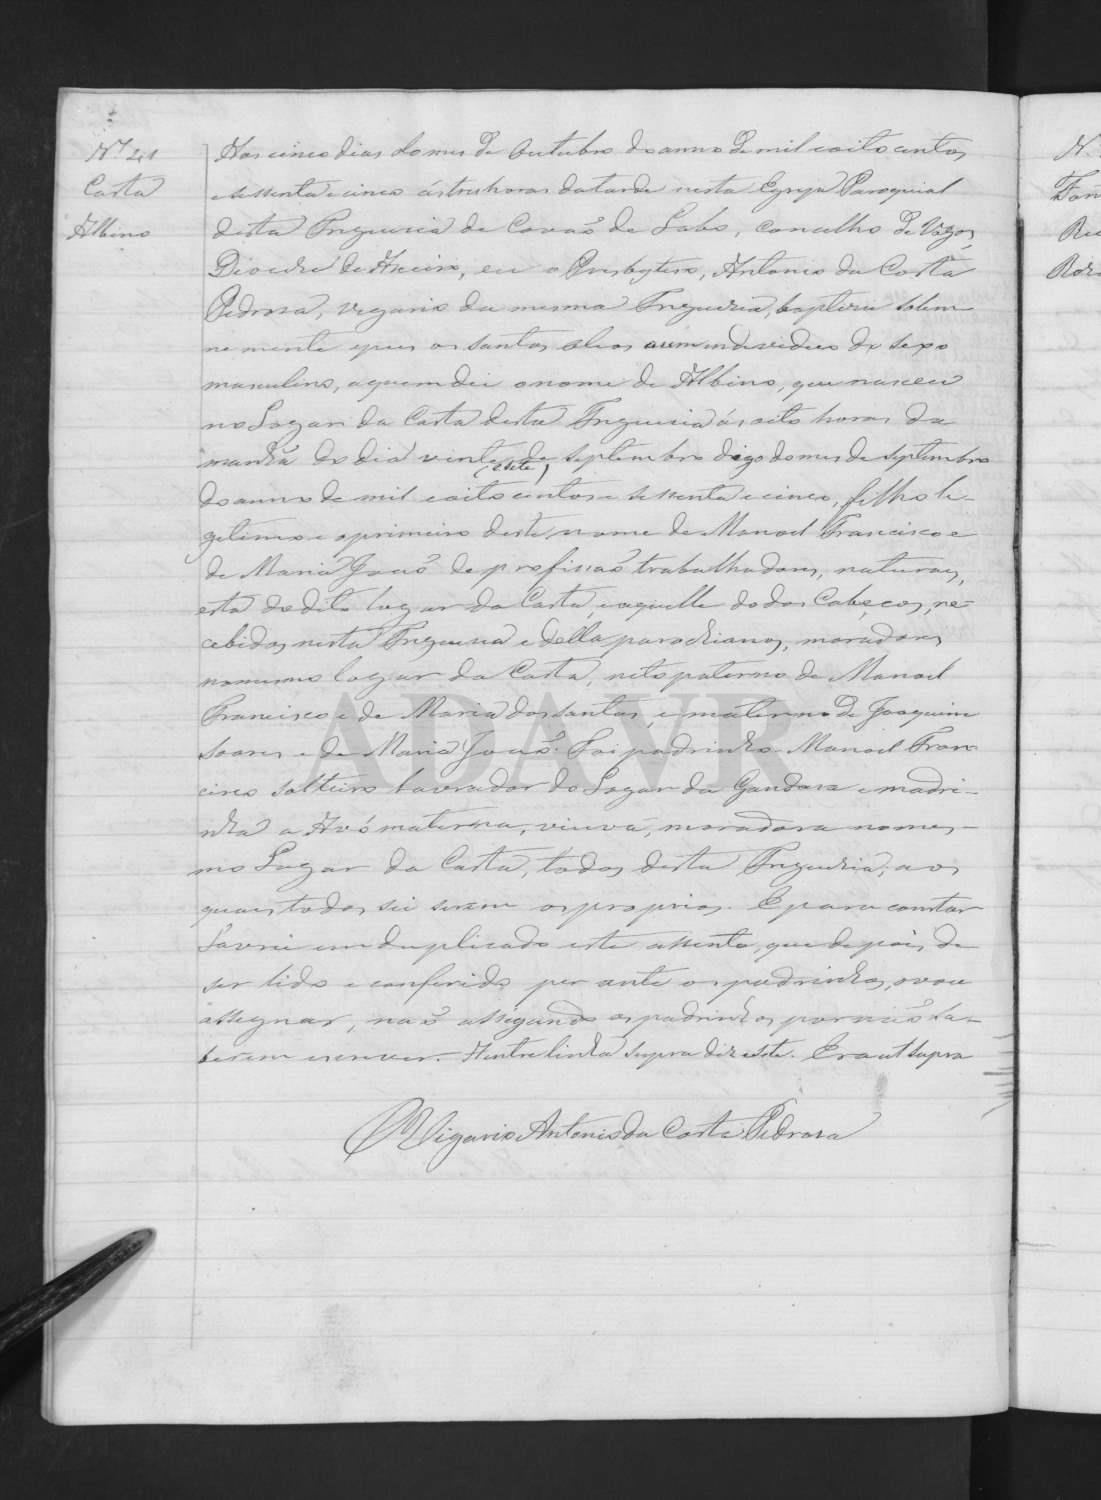 Nº 41
Costa
Albino
Aos cinco dias do mes de Outubro do anno de mil e oito centos
e sessenta e cinco ás tres horas da tarde nesta Egreja Paroquial
desta Freguesia de Covaõ do Lobo, Concelho de Vagos,
Diocese de Aveiro, eu o Presbytero, Antonio da Costa
Pedrosa, vigario da mesma Freguesia, baptizei solem
ne mente e pus os santos oleos a um individuo do sexo
masculino, a quem dei o nome de Albino, que nasceu
no Lugar da Costa desta Freguesia ás oito horas da
manhã do dia vinte de septembro digo do mes de septembro
(e sete)
do anno de mil e oito centos e sessenta e cinco, filho le-
getimo e o primeiro deste nome de Manoel Francisco e
de Maria Joaõ de profissaõ trabalhadores, naturaes,
esta do dito lugar da Costa, e aquelle do dos Cabeços, re-
cebidos nesta Freguesia e della parochianos, moradores
no mesmo lugar da Costa, neto paterno de Manoel
Francisco e de Maria dos santos, e materno de Joaquim
Soares e de Maria Joaõ. Foi padrinho Manoel Fran-
cisco solteiro lavrador do Lugar da Gandara e madri-
nha a Avó materna, viuva, moradora no mes-
mo Lugar da Costa, todos desta Freguesia; aos
quaes todos sei serem os proprios. E para constar
Lavrei em duplicado este assento, que depois de
ser lido e conferido per ante os padrinhos, o vou
assegnar, naõ assegando os padrinhos por naõ sa-
berem escrever. A entrelinha supra diz e sete. Era ut supra
O Vigario Antonio da Costa Pedrosa
ADAVR
N.
Ros